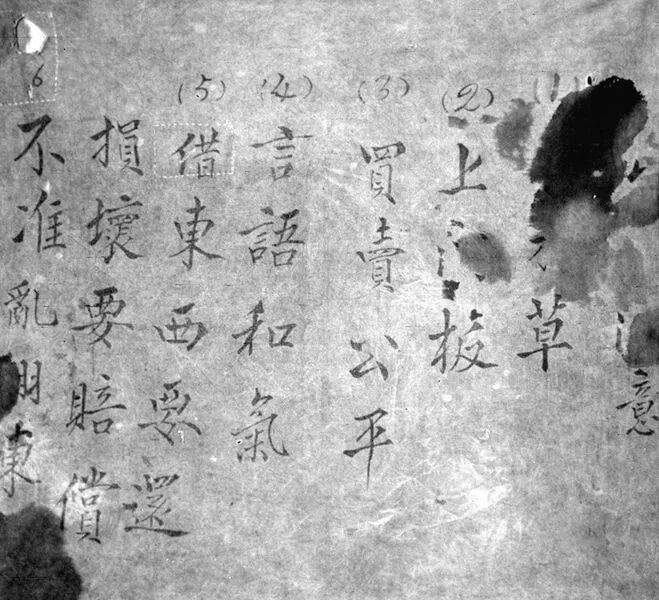 意
(1) 草
(2) 上 板
(3) 買賣公平
(4) 言語和氣
(5) 借東西要還
損壞要賠償
6 不准亂用東